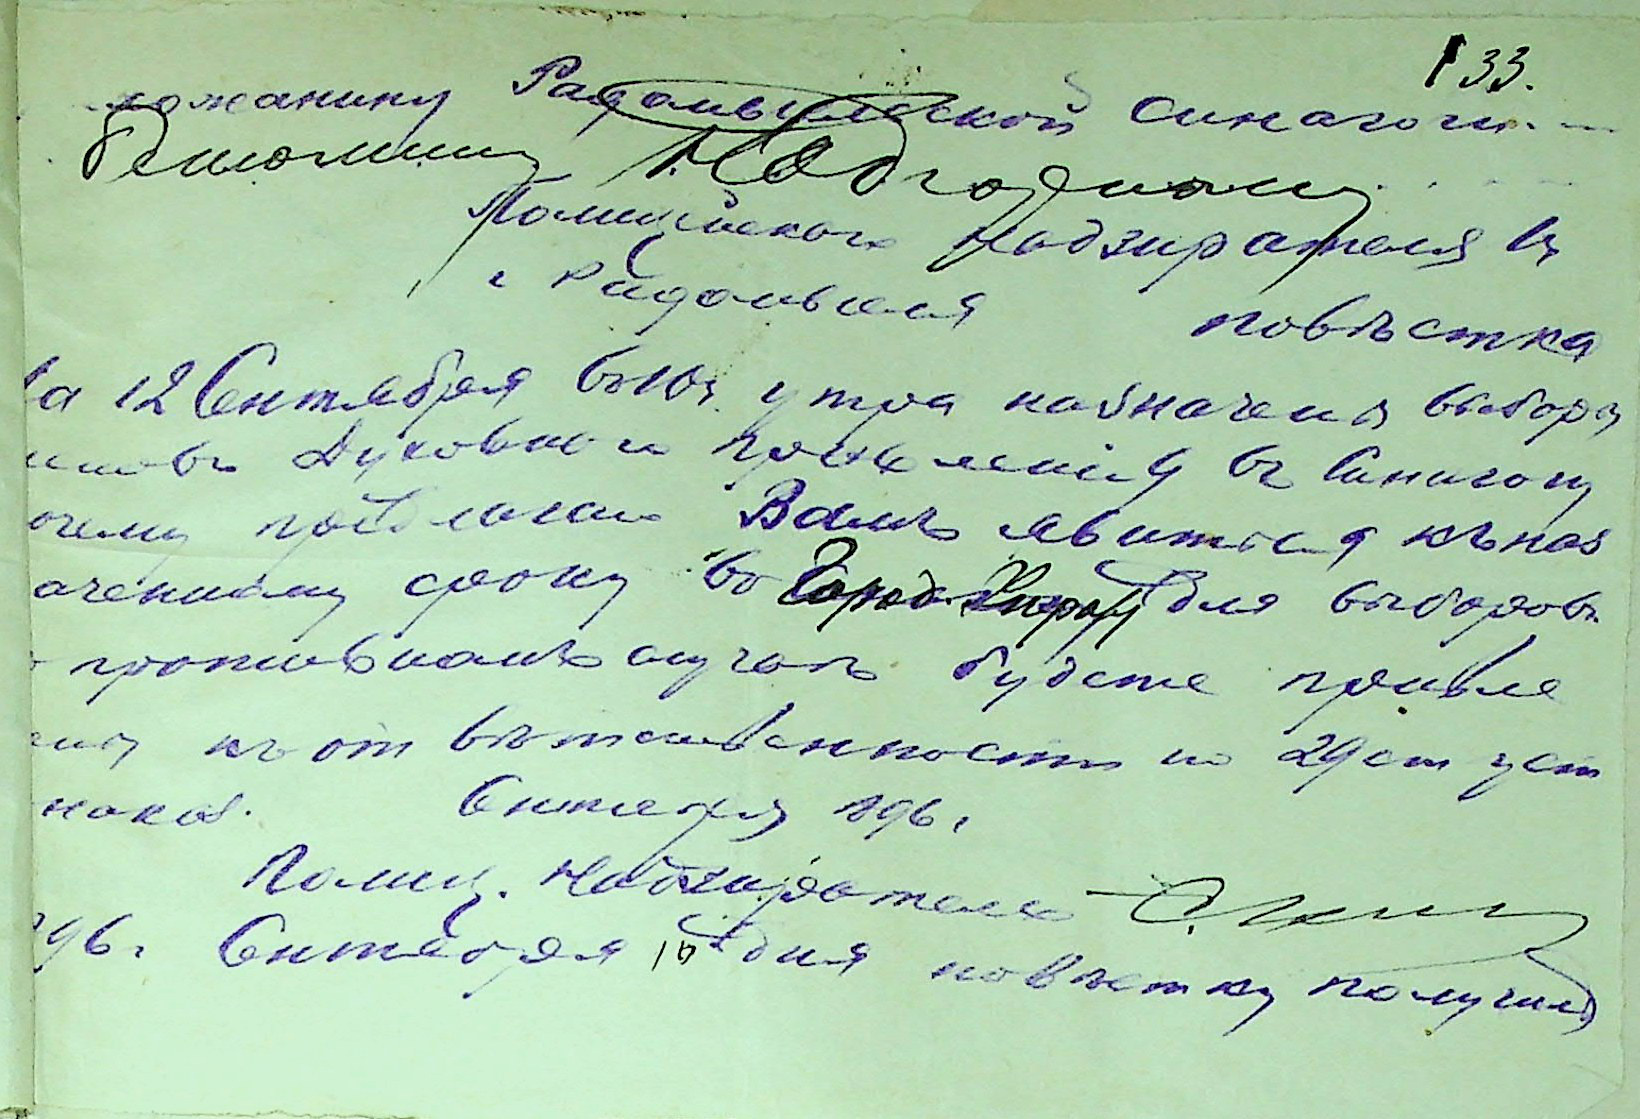 133.
рожанину Радомысльской синагоги
Полицейскаго Надзирателя въ
г Радомысля повѣстка
На 12 Сентября въ 10 ч утра назначены выборы
членовъ Духовнаго Правленія въ Синагогу
почему предлагаю Вамъ явиться къ наз
наченному сроку во Город. Управу для выборовъ
противномъ случаѣ будете привле
чены къ отвѣтственности по 29 ст уст
наказ. Сентября 1896 г
Полиц. Надзиратель
1896 г Сентября 10 дня повѣстку получилъ